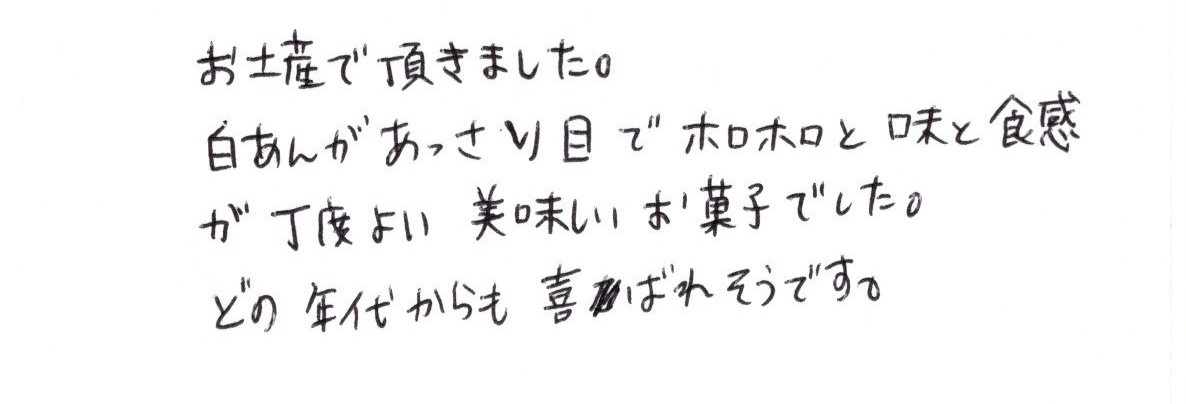 お土産で頂きました。
白あんがあっさり目でホロホロと味と食感
が丁度よい美味しいお菓子でした。
どの年代からも喜ばれそうです。